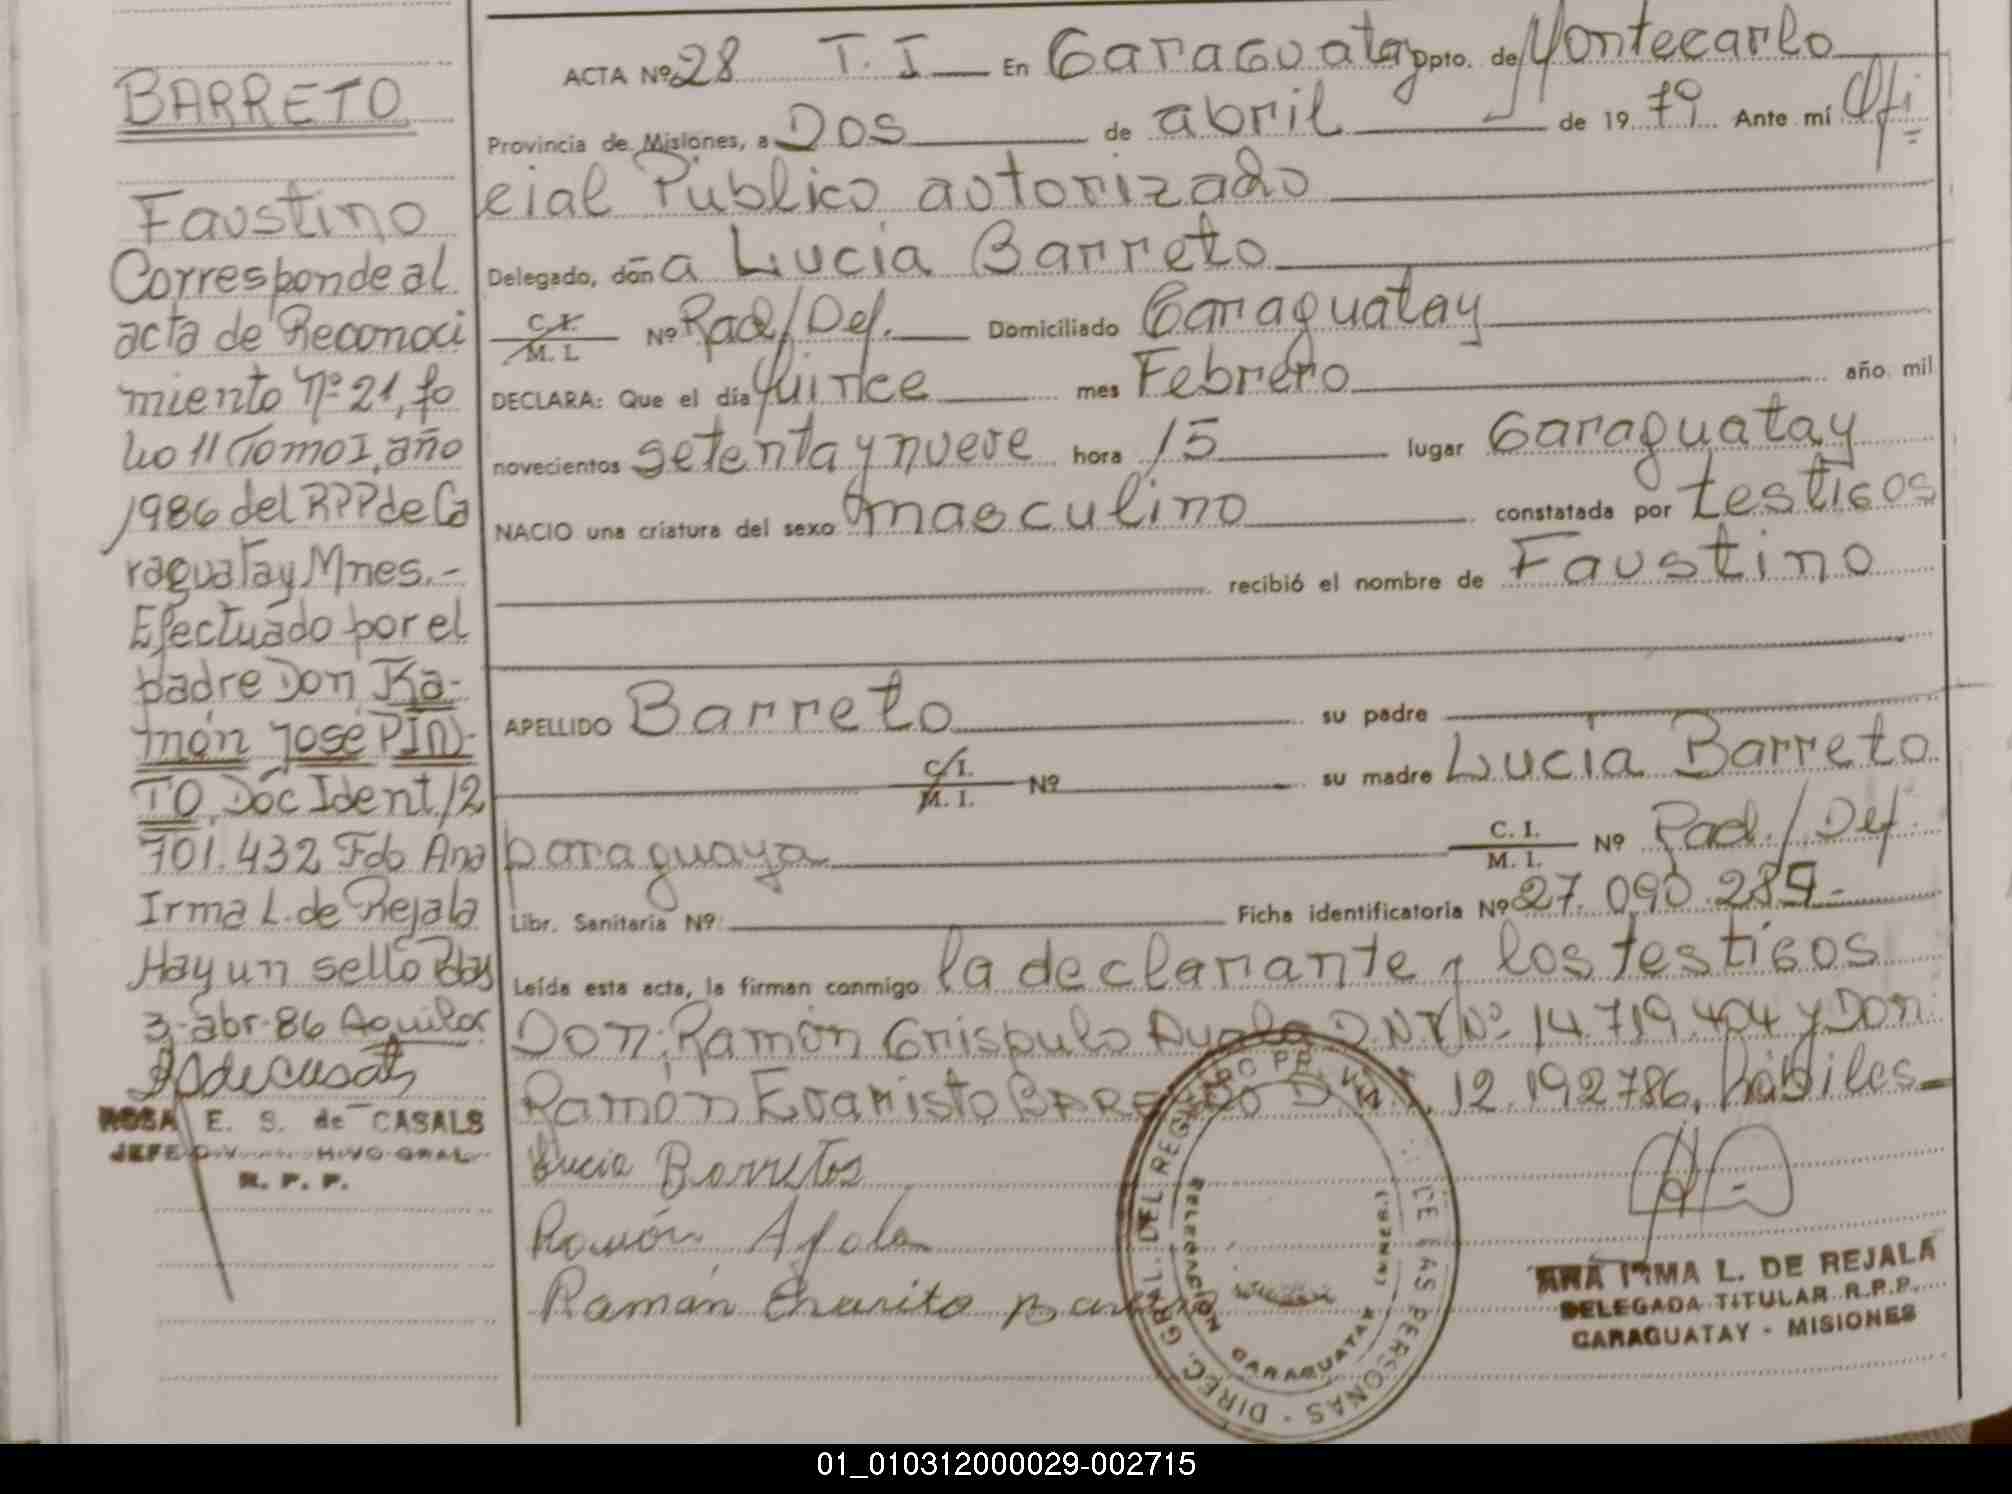 BARRETO
Faustino
Corresponde al
acta de Reconoci
miento Nº 21, fo
lio 11 Tomo I, año
1986 del RPP de Ca
raguatay Mnes.-
Efectuado por el
padre Don Ra-
món José PIN-
TO Doc Ident. 12
701.432 Fdo Ana
Irma L. de Rejala
Hay un sello Pdas
3-abr-86 Aguilar
ROSA E. S. de CASALS
R. P. P.
ACTA Nº 28 T. I En Caraguatay Dpto. de Montecarlo
Provincia de Misiones, a Dos de abril de 19 79 Ante mí Ofi
cial Publico autorizado
Delegado, doña Lucia Barreto
C. I. / M. I. Nº Rad/Def. Domiciliado Caraguatay
DECLARA: Que el día quince mes Febrero año mil
novecientos setenta y nueve hora 15 lugar Caraguatay
NACIO una criatura del sexo masculino constatada por testigos
recibió el nombre de Faustino
APELLIDO Barreto su padre
C. I. / M. I. Nº su madre Lucia Barreto
paraguaya C. I. / M. I. Nº Rad./Def.
Libr. Sanitaria Nº Ficha identificatoria Nº 27.090.289-
Leída esta acta, la firman conmigo la declarante y los testigos
Don; Ramón Crispulo Ayala D.N.I Nº 14.719.404 y Don
Ramón Evaristo BARRETO D.N.I. 12.192786, hábiles-
Lucia Barretos
Ramón Ayala
Ramón
DIREC. GRAL. DEL REGISTRO PROVINCIAL DE LAS PERSONAS
DELEGACION CARAGUATAY
(MISIONES)
ANA IRMA L. DE REJALA
DELEGADA TITULAR R.P.P.
CARAGUATAY - MISIONES
01_010312000029-002715